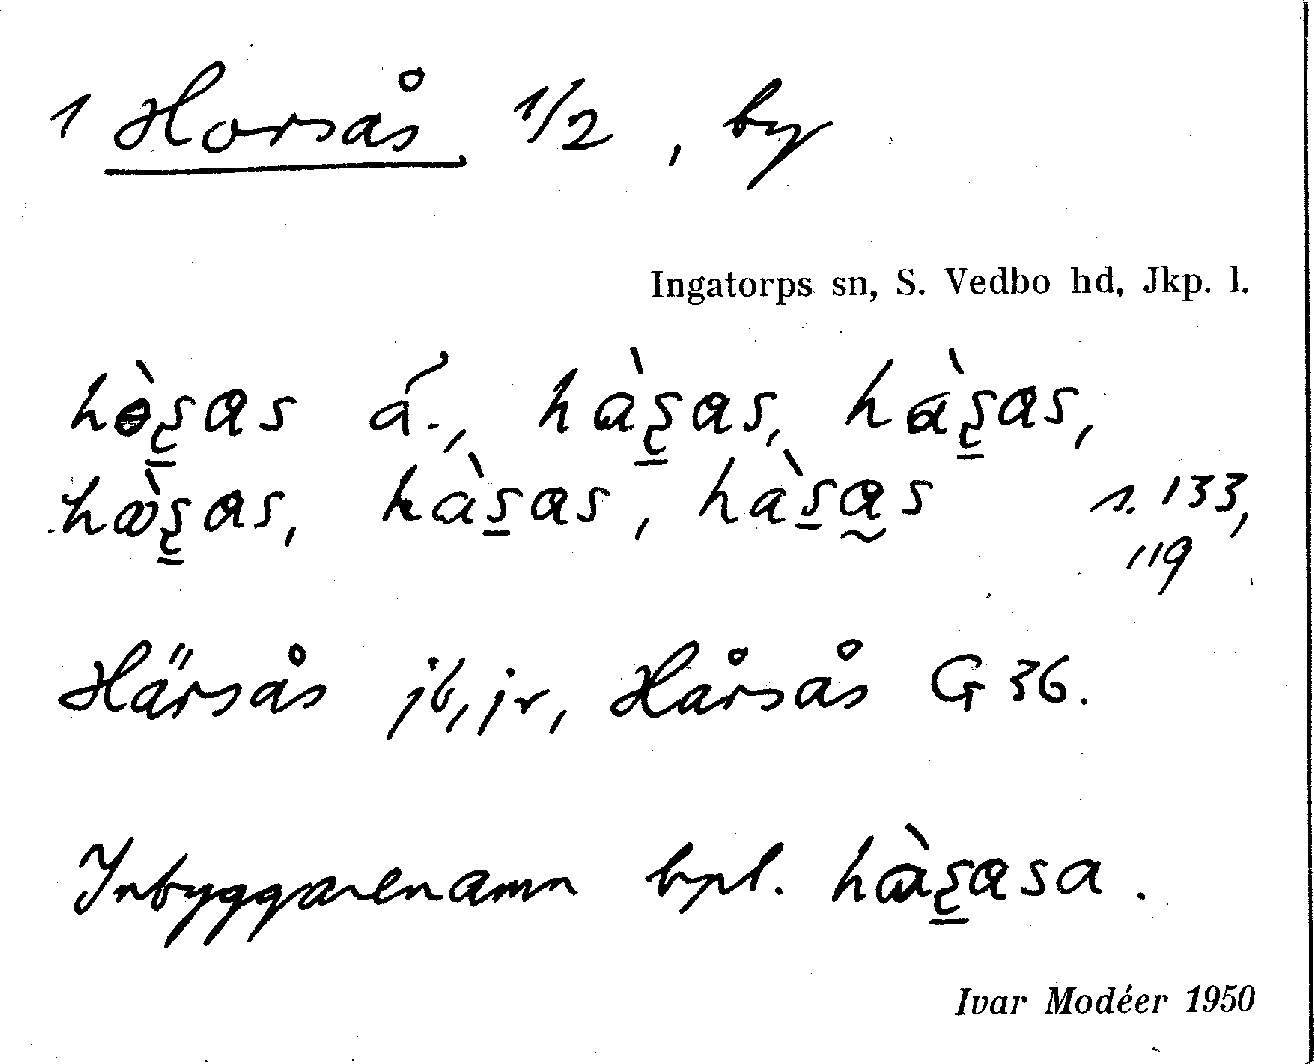 1 Horsås 1/2, by
Ingatorps sn, S. Vedbo hd, Jkp. l.
hɵ̀ʂ̲as á., hàʂ̲as, hàʂ̲as,
hæ̀ʂ̲as, hàs̲as, hàs̲a̰s s. 133,
119
Härsås jb, jr, Hårsås G 36.
Inbyggarenamn bpl. hàʂ̲asa.
Ivar Modéer 1950